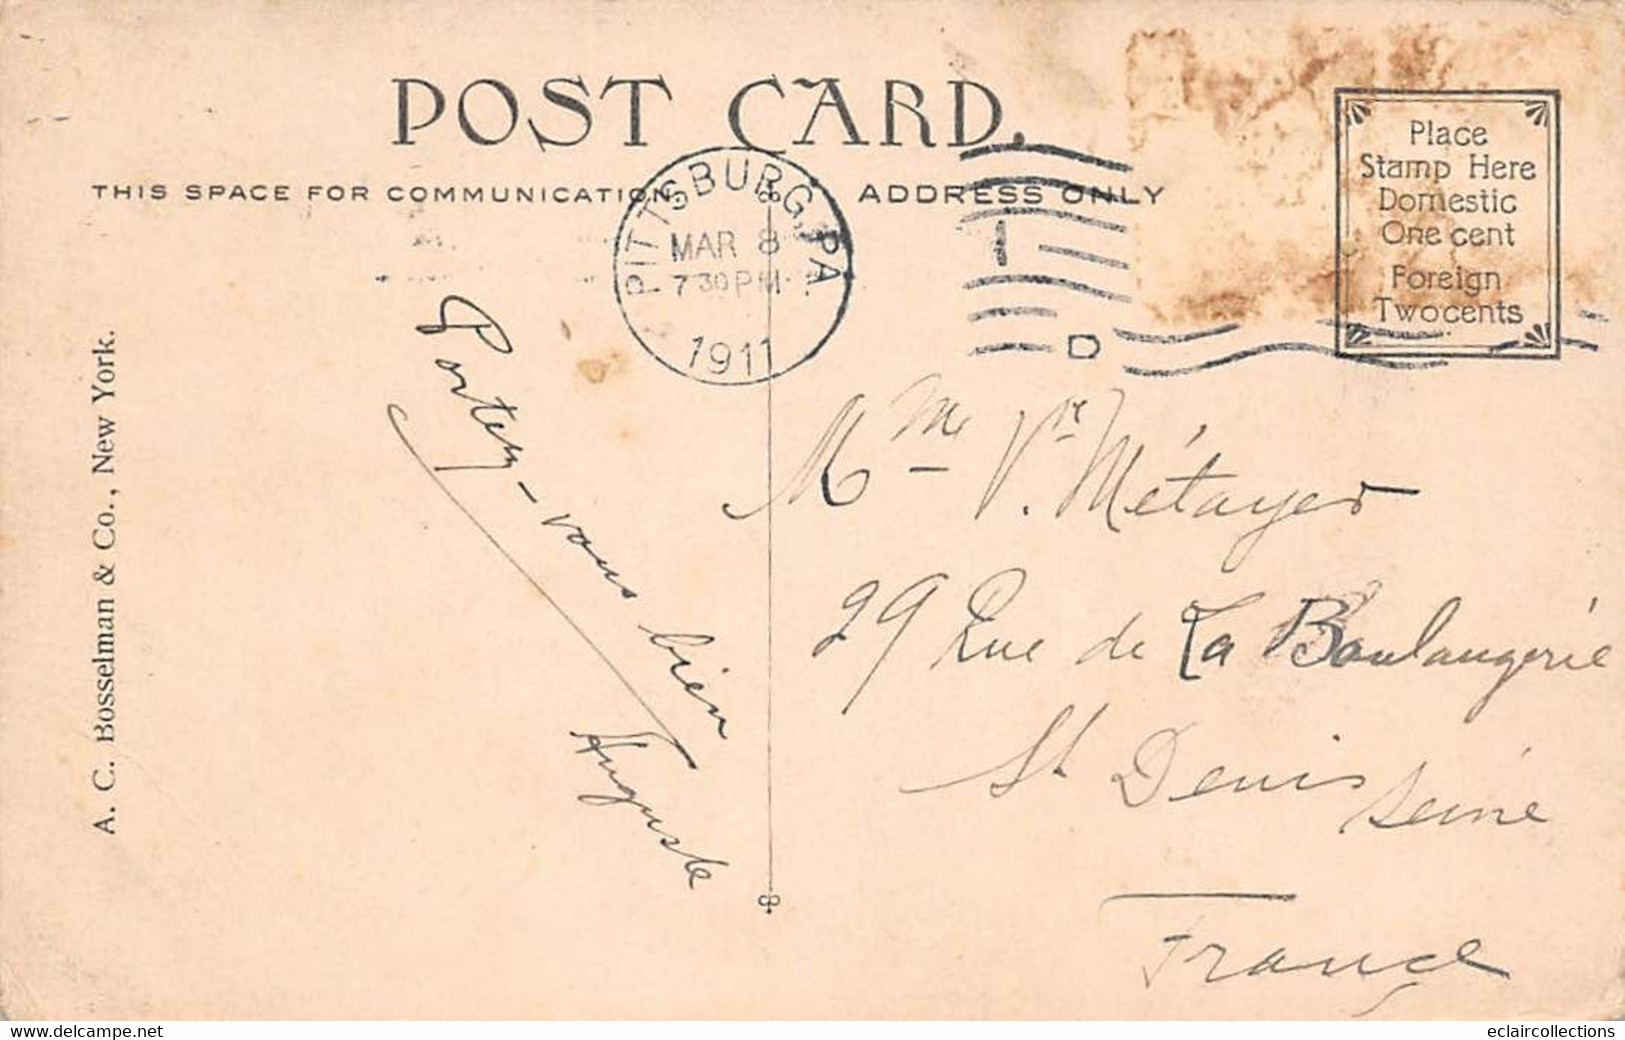 POST CARD.
THIS SPACE FOR COMMUNICATION.
ADDRESS ONLY
Place
Stamp Here
Domestic
One cent
Foreign
Two cents
PITTSBURG, PA
MAR 8
7 30 PM
1911
1
D
A. C. Bosselman & Co., New York.
Portez-vous bien
Auguste
Mme Vve. Métayer
29 Rue de La Boulangerie
St Denis
Seine
France
eclaircollections